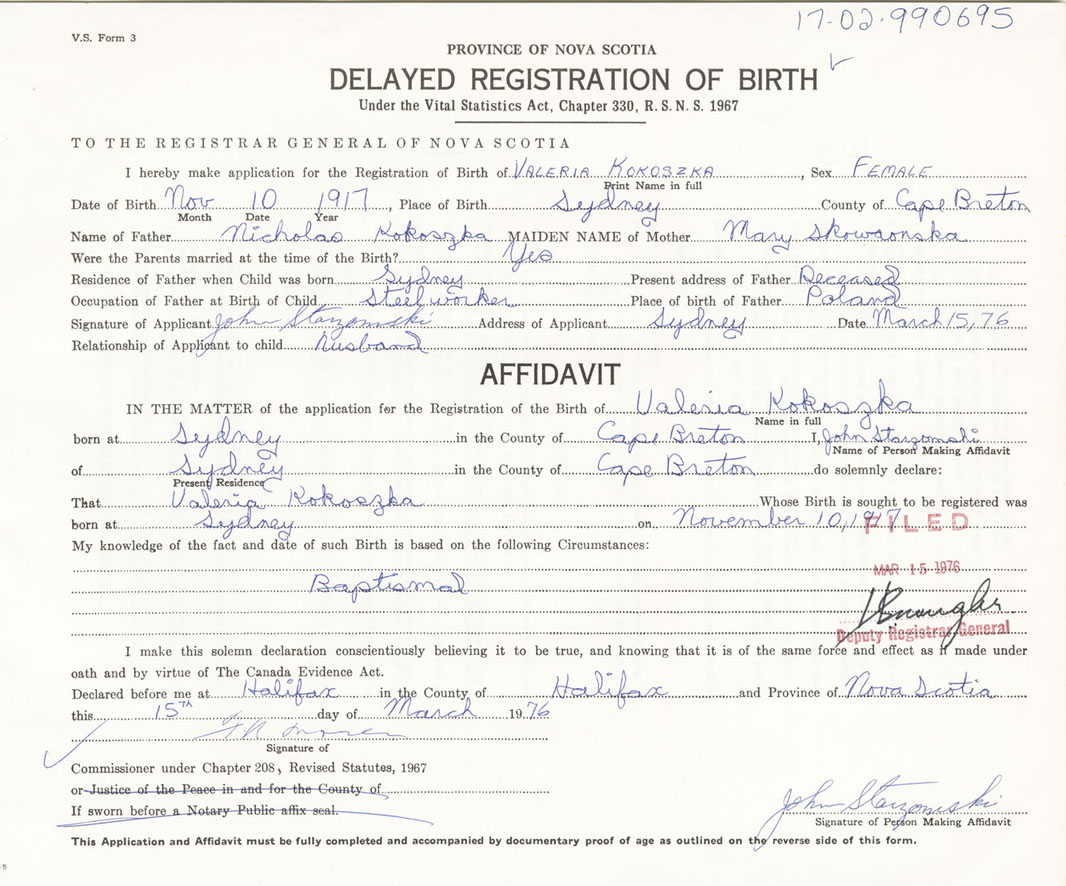 17-02-990695
V.S. Form 3
PROVINCE OF NOVA SCOTIA
DELAYED REGISTRATION OF BIRTH
Under the Vital Statistics Act, Chapter 330, R. S. N. S. 1967
TO THE REGISTRAR GENERAL OF NOVA SCOTIA
I hereby make application for the Registration of Birth of VALERIA KOKOSZKA, Sex FEMALE
Print Name in full
Date of Birth Nov 10 1917, Place of Birth Sydney County of Cape Breton
Month Date Year
Name of Father Nicholas Kokoszka MAIDEN NAME of Mother Mary Skowaonska
Were the Parents married at the time of the Birth? Yes
Residence of Father when Child was born Sydney Present address of Father Deceased
Occupation of Father at Birth of Child Steel worker Place of birth of Father Poland
Signature of Applicant John Starzomski Address of Applicant Sydney Date March 15, 76
Relationship of Applicant to child Husband
AFFIDAVIT
IN THE MATTER of the application for the Registration of the Birth of Valeria Kokoszka
Name in full
born at Sydney in the County of Cape Breton I, John Starzomski
Name of Person Making Affidavit
of Sydney in the County of Cape Breton do solemnly declare:
Present Residence
That Valeria Kokoszka Whose Birth is sought to be registered was
born at Sydney on November 10, 1917
FILED
My knowledge of the fact and date of such Birth is based on the following Circumstances:
MAR 15 1976
Baptismal
Deputy Registrar General
I make this solemn declaration conscientiously believing it to be true, and knowing that it is of the same force and effect as if made under
oath and by virtue of The Canada Evidence Act.
Declared before me at Halifax in the County of Halifax and Province of Nova Scotia
this 15TH day of March 19 76
Signature of
Commissioner under Chapter 208, Revised Statutes, 1967
or Justice of the Peace in and for the County of
If sworn before a Notary Public affix seal.
John Starzomski
Signature of Person Making Affidavit
This Application and Affidavit must be fully completed and accompanied by documentary proof of age as outlined on the reverse side of this form.